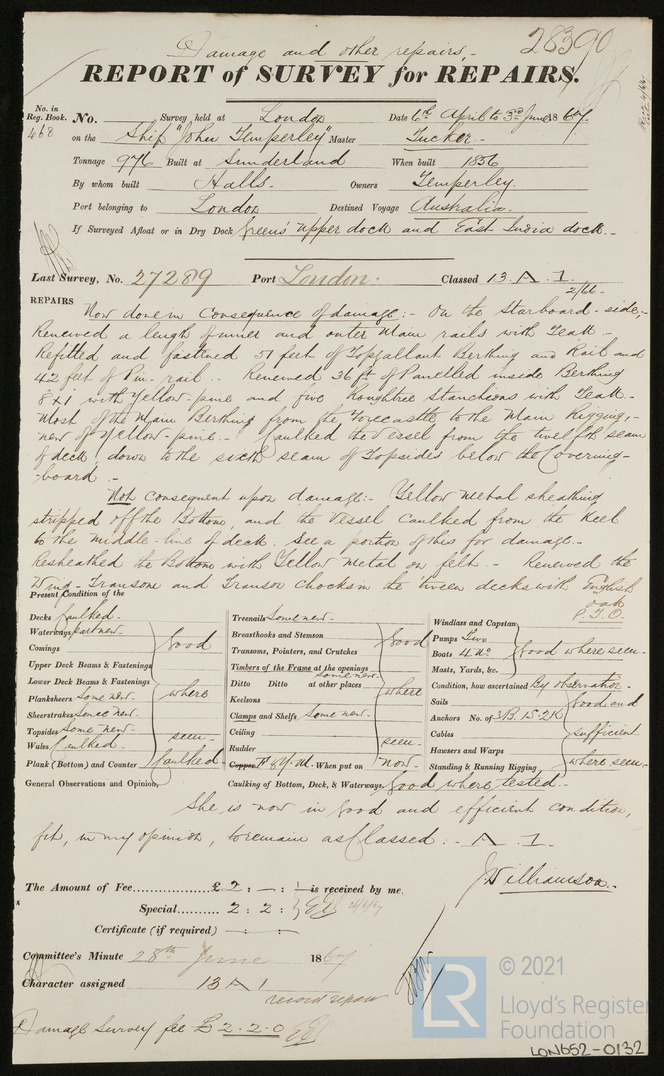 28390
Damage and other repairs.-
REPORT of SURVEY for REPAIRS.
No. in
Reg. Book.
468
No. Survey held at London Date 6th April to 3rd June 1867.
on the Ship "John Temperley" Master Tucker.-
Tonnage 976 Built at Sunderland When built 1856
By whom built Halls.- Owners Temperley.
Port belonging to London Destined Voyage Australia.
If Surveyed Afloat or in Dry Dock Green's upper dock and East India dock.-
Last Survey, No. 27289 Port London. Classed 13 A. 1.
2/66-
REPAIRS
Now done in Consequence of damage:- On the Starboard-side;-
Renewed a length of inner and outer Main rails with Teak-
Refitted and fastened 51 feet of Topgallant Berthing and Rail and
42 feet of Pin-rail.- Renewed 36 ft of Panelled inside Berthing
8x1 with Yellow-pine and five Roughtree Stanchions with Teak-
Most of the Main Berthing from the Forecastle to the Main Rigging,-
new of Yellow-pine.- Caulked the Vessel from the twelfth seam
of deck, down to the sixth seam of Topsides below the Covering-
board.-
Not consequent upon damage:- Yellow metal sheathing
stripped off the Bottom, and the Vessel caulked from the Keel
to the middle-line of deck. See a portion of this for damage.-
Resheathed the Bottom with Yellow Metal on felt.- Renewed the
Wing-Transom and Transom Chocks in the tween decks with English
oak
P.T.O.
Present Condition of the
Decks Caulked.
Waterways part new.
Comings
Upper Deck Beams & Fastenings
Lower Deck Beams & Fastenings
Planksheers Some new.
Sheerstrakes Some new.
Topsides Some new.
Wales Caulked.
Plank (Bottom) and Counter Caulked
Good
where
seen-
Treenails Some new.
Breasthooks and Stemson
Transoms, Pointers, and Crutches
Timbers of the Frame at the openings
Ditto Ditto at other places some new.
Keelsons
Clamps and Shelfs Some new.
Ceiling
Rudder
Copper F & Y.M. When put on now.
Good
where
seen-
Windlass and Capstan
Pumps Two
Boats 4 No
Masts, Yards, &c.
Good where seen-
Condition, how ascertained By observation.
Sails
Anchors No. of 3B. 1S. 2K
Cables
Hawsers and Warps
Standing & Running Rigging
Good and
sufficient
where seen-
General Observations and Opinion, Caulking of Bottom, Deck, & Waterways Good where tested.-
She is now in good and efficient condition,
fit, in my opinion, to remain as Classed.- A 1.
J Williamson.
The Amount of Fee £ 2 : - : - is received by me,
Special 2 : 2 :
Certificate (if required) - : :
Committee's Minute 28th June 1867
Character assigned 13 A 1
record upon
Damage Survey fee £2.2.0
LR
© 2021
Lloyd's Register
Foundation
LON652-0132